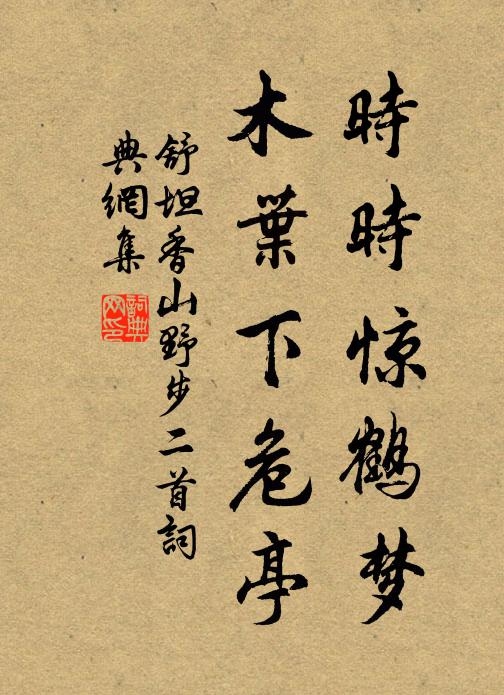 時時惊鶴梦
木葉下危亭
舒坦香山野步二首詞
典網集
詞典网印